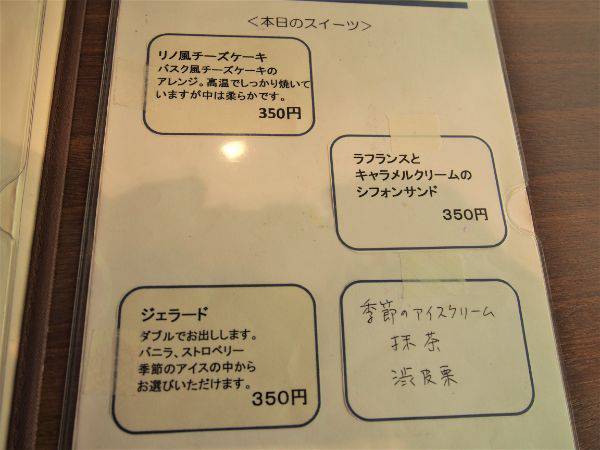 <本日のスイーツ>
リノ風チーズケーキ
バスク風チーズケーキの
アレンジ。高温でしっかり焼いて
いますが中は柔らかです。
350円
ラフランスと
キャラメルクリームの
シフォンサンド
350円
ジェラード
ダブルでお出しします。
バニラ、ストロベリー
季節のアイスの中から
お選びいただけます。
350円
季節のアイスクリーム
抹茶
渋皮栗